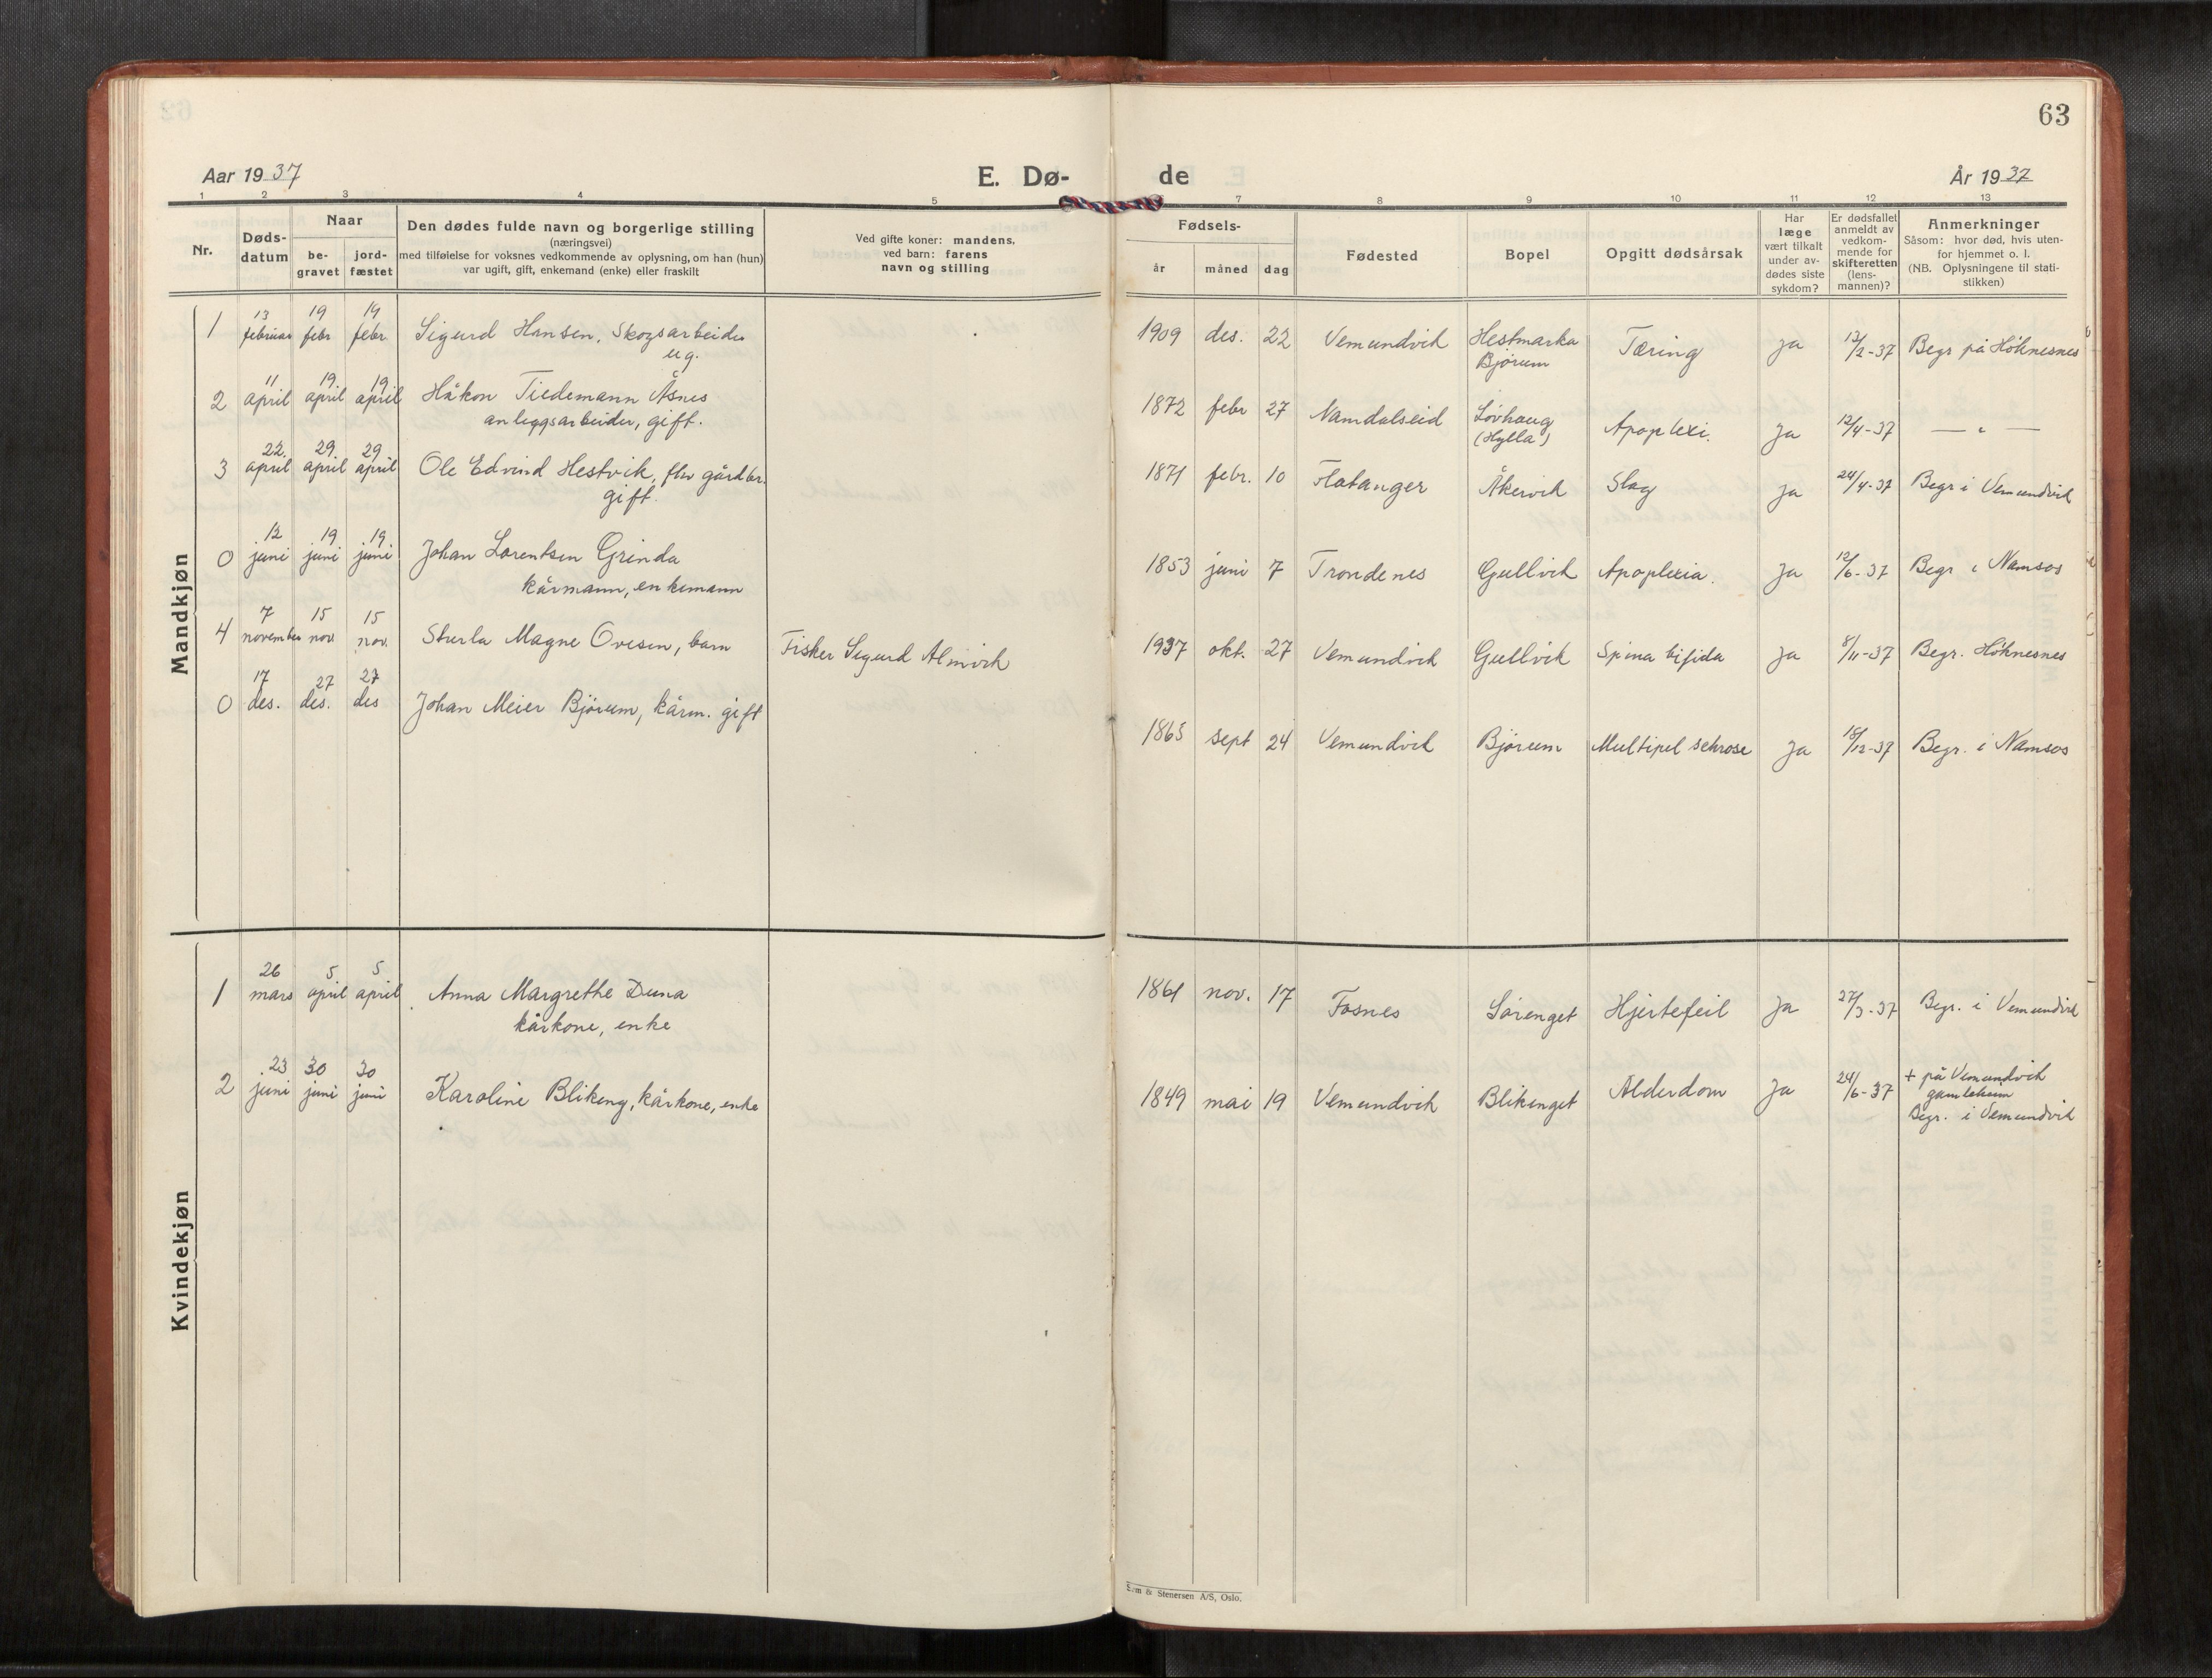 63
Aar 1937
E. Dø-
de
År 1937
1 2 3 4 5 7 8 9 10 11 12 13
Nr.
Døds-
datum
Naar
be-
gravet
jord-
fæstet
Den dødes fulde navn og borgerlige stilling
(næringsvei)
med tilføielse for voksnes vedkommende av oplysning, om han (hun)
var ugift, gift, enkemand (enke) eller fraskilt
Ved gifte koner: mandens,
ved barn: farens
navn og stilling
Fødsels-
år måned dag
Fødested
Bopel
Opgitt dødsårsak
Har
læge
vært tilkalt
under av-
dødes siste
sykdom?
Er dødsfallet
anmeldt av
vedkom-
mende for
skifteretten
(lens-
mannen)?
Anmerkninger
Såsom: hvor død, hvis uten-
for hjemmet o. l.
(NB. Oplysningene til stati-
stikken)
Mandkjøn
13 19 19
1 februar febr febr. Sigurd Hansen, Skogsarbeider 1909 des. 22 Vemundvik Hestmarka Tæring Ja 13/2-37 Begr på Høknesnes
ug. Bjørum
11 19. 19.
2 april april april Håkon Tiedemann Åsnes 1872 febr 27 Namdalseid Løvhaug Apoplexi. Ja 12/4-37 — " —
anleggsarbeider, gift. (Hylla)
22. 29. 29
3 april april april Ole Edvind Hestvik, fhv gårdbr. 1871 febr. 10 Flatanger Åkervik Slag Ja 24/4-37 Begr i Vemundvik
gift.
12 19 19.
0 juni juni juni Johan Lorentsen Grinda 1853 juni 7 Trondenes Gullvik Apoplexia. Ja 12/6-37 Begr i Namsos
kårmann, enkemann
7 15 15
4 november nov nov. Sturla Magne Ovesen, barn Fisker Sigurd Almvik 1937 okt. 27 Vemundvik Gullvik Spina bifida Ja 8/11-37 Begr. Høknesnes
17 27 27
0 des. des. des Johan Meier Bjørum, kårm. gift 1865 sept 24 Vemundvik Bjørum Multipel sclrose Ja 18/12-37 Begr. i Namsos
Kvindekjøn
26 5 5
1 mars april april Anna Margrethe Duna 1861 nov. 17 Fosnes Sørenget Hjertefeil Ja 27/3-37 Begr. i Vemundvik
kårkone, enke
23 30 30
2 juni juni juni Karoline Blikeng, kårkone, enke 1849 mai 19 Vemundvik Blikenget Alderdom Ja 24/6-37 + på Vemundvik
gamleheim
Begr. i Vemundvik
& Stenersen A/S, Oslo.